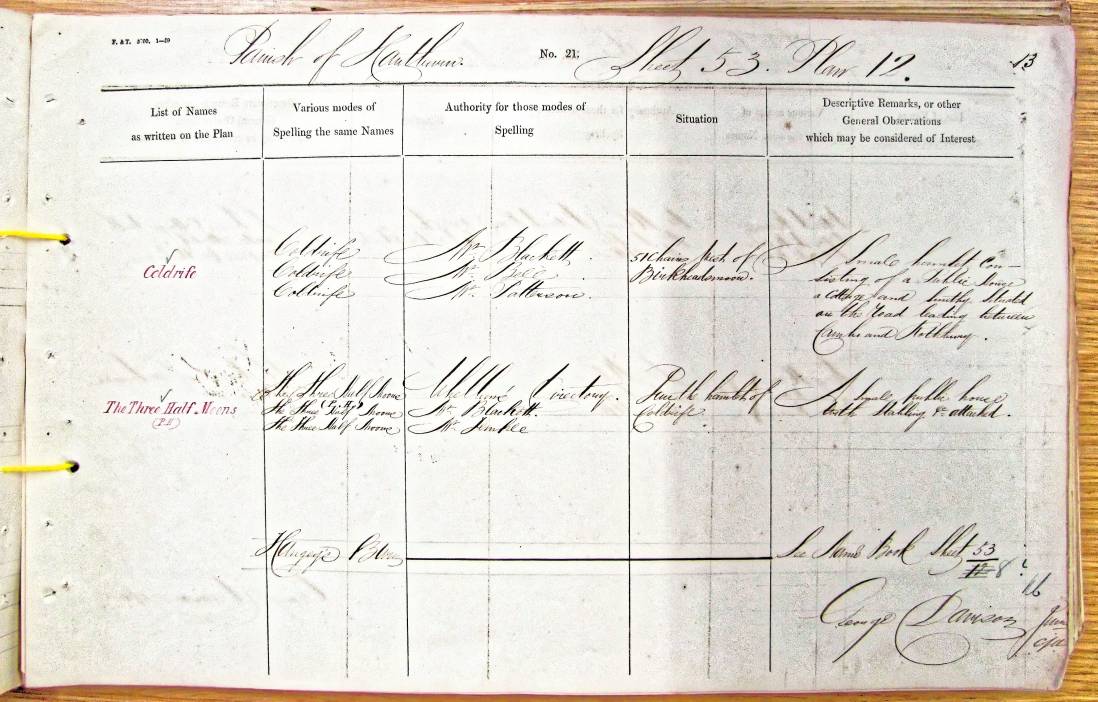 F. & T. 5/00. 1—59
Parish of Hartburn. No. 21. Sheet 53. Plan 12. 13
List of Names
as written on the Plan
Various modes of
Spelling the same Names
Authority for those modes of
Spelling
Situation
Descriptive Remarks, or other
General Observations
which may be considered of Interest
Coldrife
Coldrife
Coldrife
Coldrife
Mr. Blackett
Mr. Bell
Mr. Patterson.
51 Chains West of
Birkheadsmoor.
A Small hamlet Con-
sisting of a Public House
a Cottage and Smithy situated
on the road leading between
Cambo and Rothbury.
The Three Half-Moons
(P.H)
The Three Half Moons
The Three Half Moons
(P.H)
The Three Half Moons
Whellan's Directory.
Mr. Blackett
Mr.
In the hamlet of
Coldrife.
A Small public house
with Stabling &c attached.
Burn
See Name Book Sheet 53
12 8
George Davison